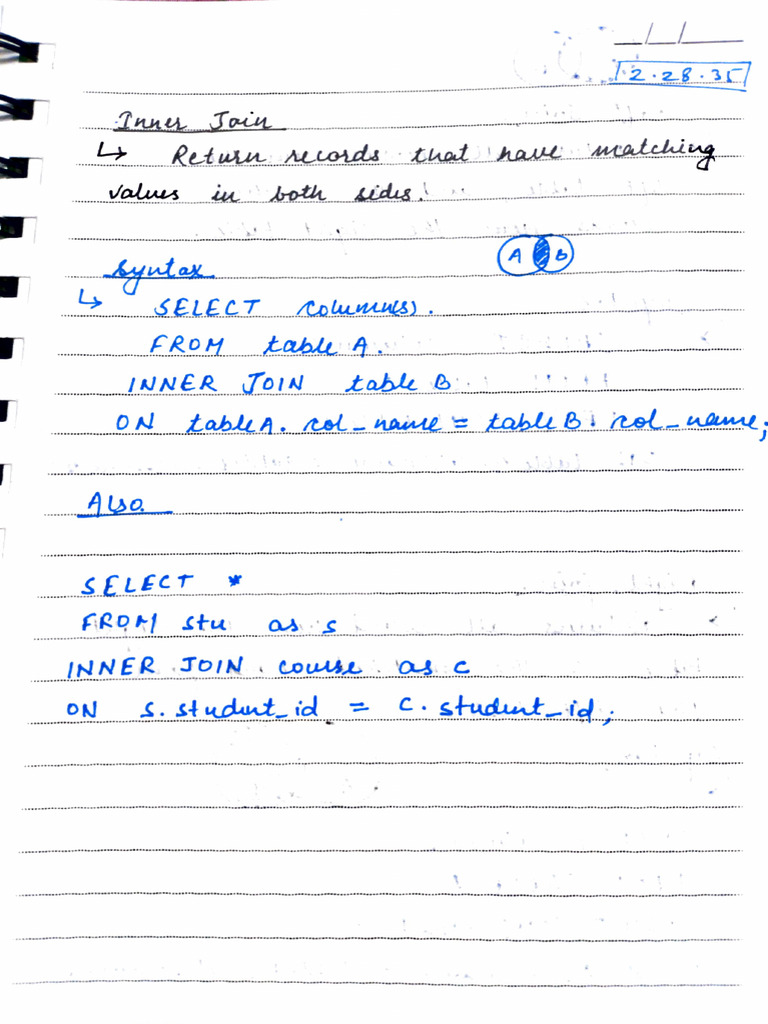 2.28.35
Inner Join
↳ Return records that have matching
values in both sides.
A B
Syntax
↳ SELECT column(s).
FROM table A.
INNER JOIN table B
ON tableA. col_name = tableB. col_name;
Also
SELECT *
FROM stu as s
INNER JOIN course as c
ON s.student_id = c.student_id;